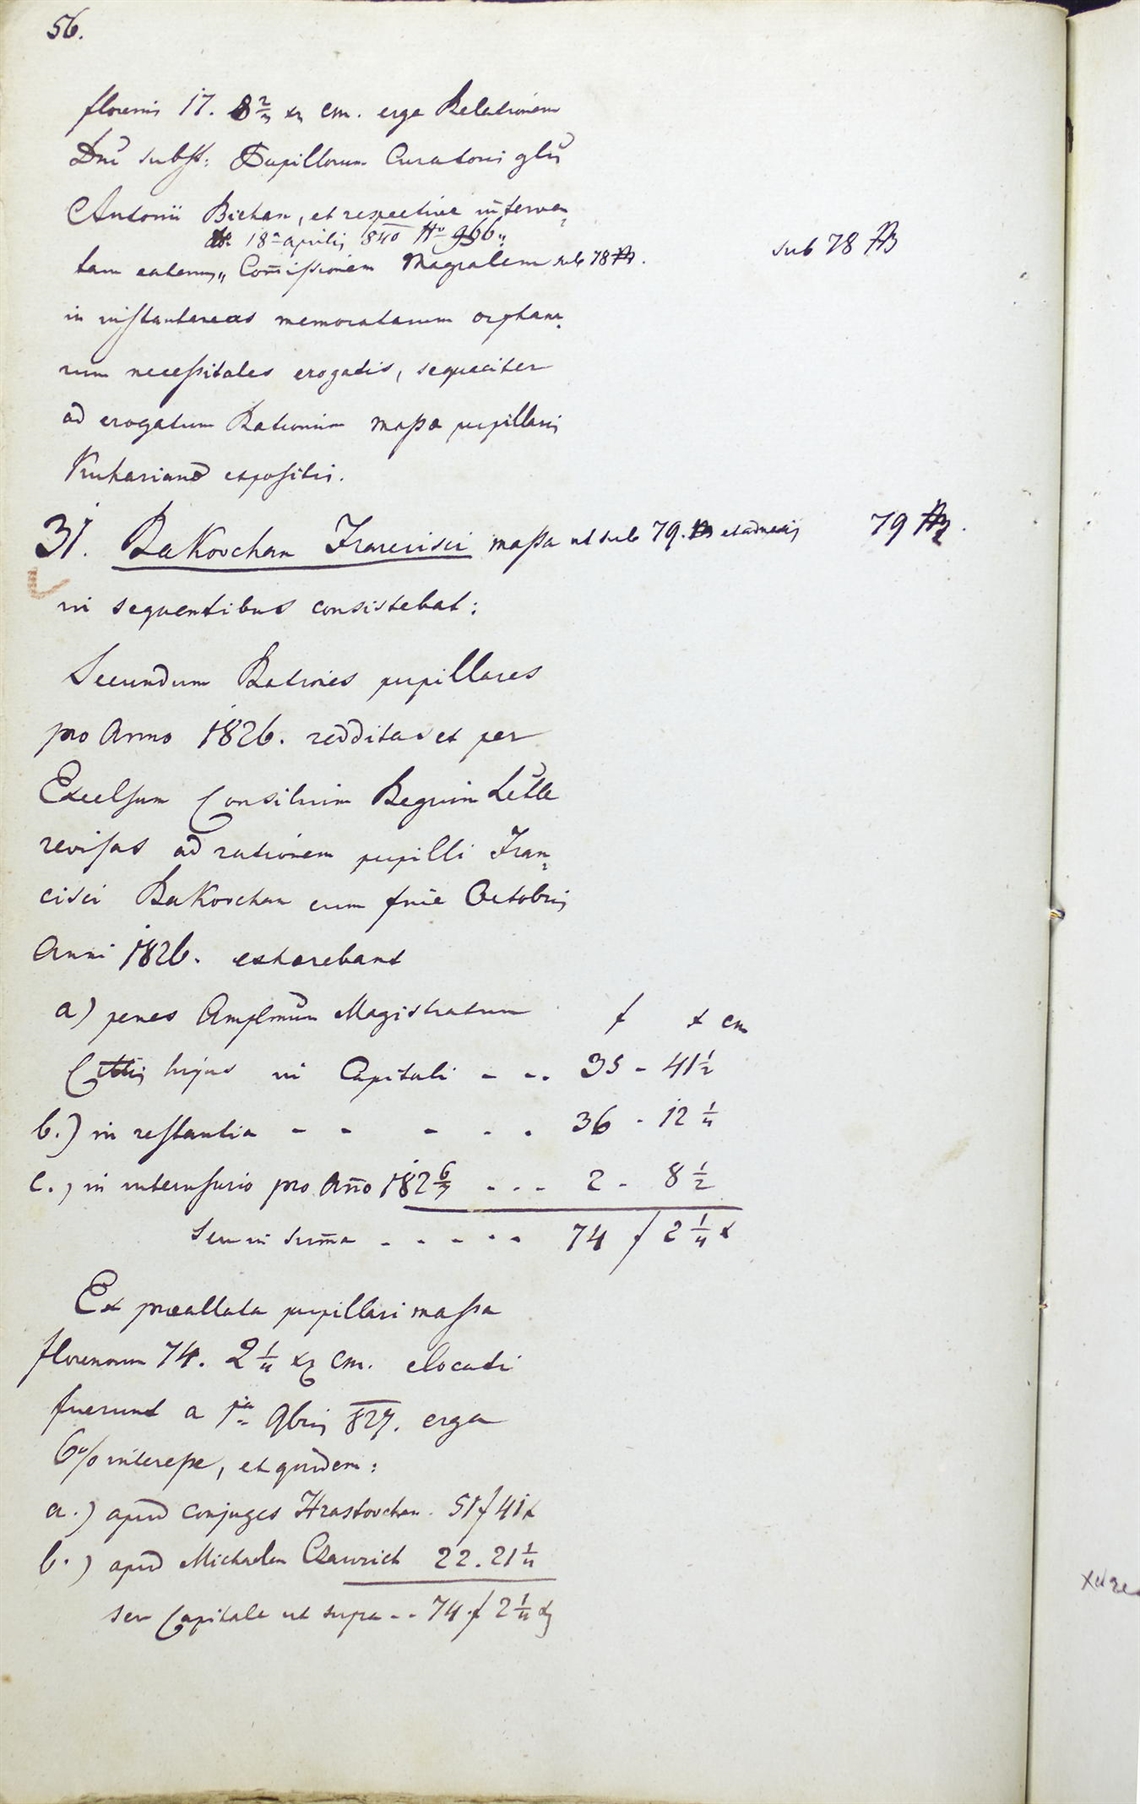 56.
florenis 17. 8 2/3 xr cm. erga Relationem
Dni subst: Pupillorum Curatoris
Antonii Bichan, et respective interven-
18a aprilis 840 No 966
tam eatenus Comissionem Magralem sub 78
sub 78
in instantaneas memoratarum orphana-
rum necessitates erogatis, sequaciter
ad erogatum Rationum massae pupillaris
Kukariana expositis.
31. Bakovchan Francisci massa ut sub 79. et adnexis
79
in sequentibus consistebat:
Secundum Rationes pupillares
pro Anno 1826. redditas et per
Excelsum Consilium Regium Lttle
revisas ad rationem pupilli Fran-
cisci Bakovchan cum fine Octobris
Anni 1826. exstarebant
a) penes Amplmum Magistratum
f x cm
Cittis hujus in Capitali - - - 35 - 41 1/2
b.) in restantia - - - - - 36 - 12 1/4
c.) in interusurio pro Anno 182 6/7 - - - 2 - 8 1/2
Seu in summa - - - - - 74 f 2 1/4 x
Ex praeallata pupillari massa
florenorum 74. 2 1/4 xr cm. elocati
fuerunt a 1ma 9bris 827. erga
6% interesse, et quidem:
a.) apud conjuges Hrastovchan. 51 f 41 x
b.) apud Michaelem 22. 21 1/4
seu Capitale ut supra - - 74 f 2 1/4 x